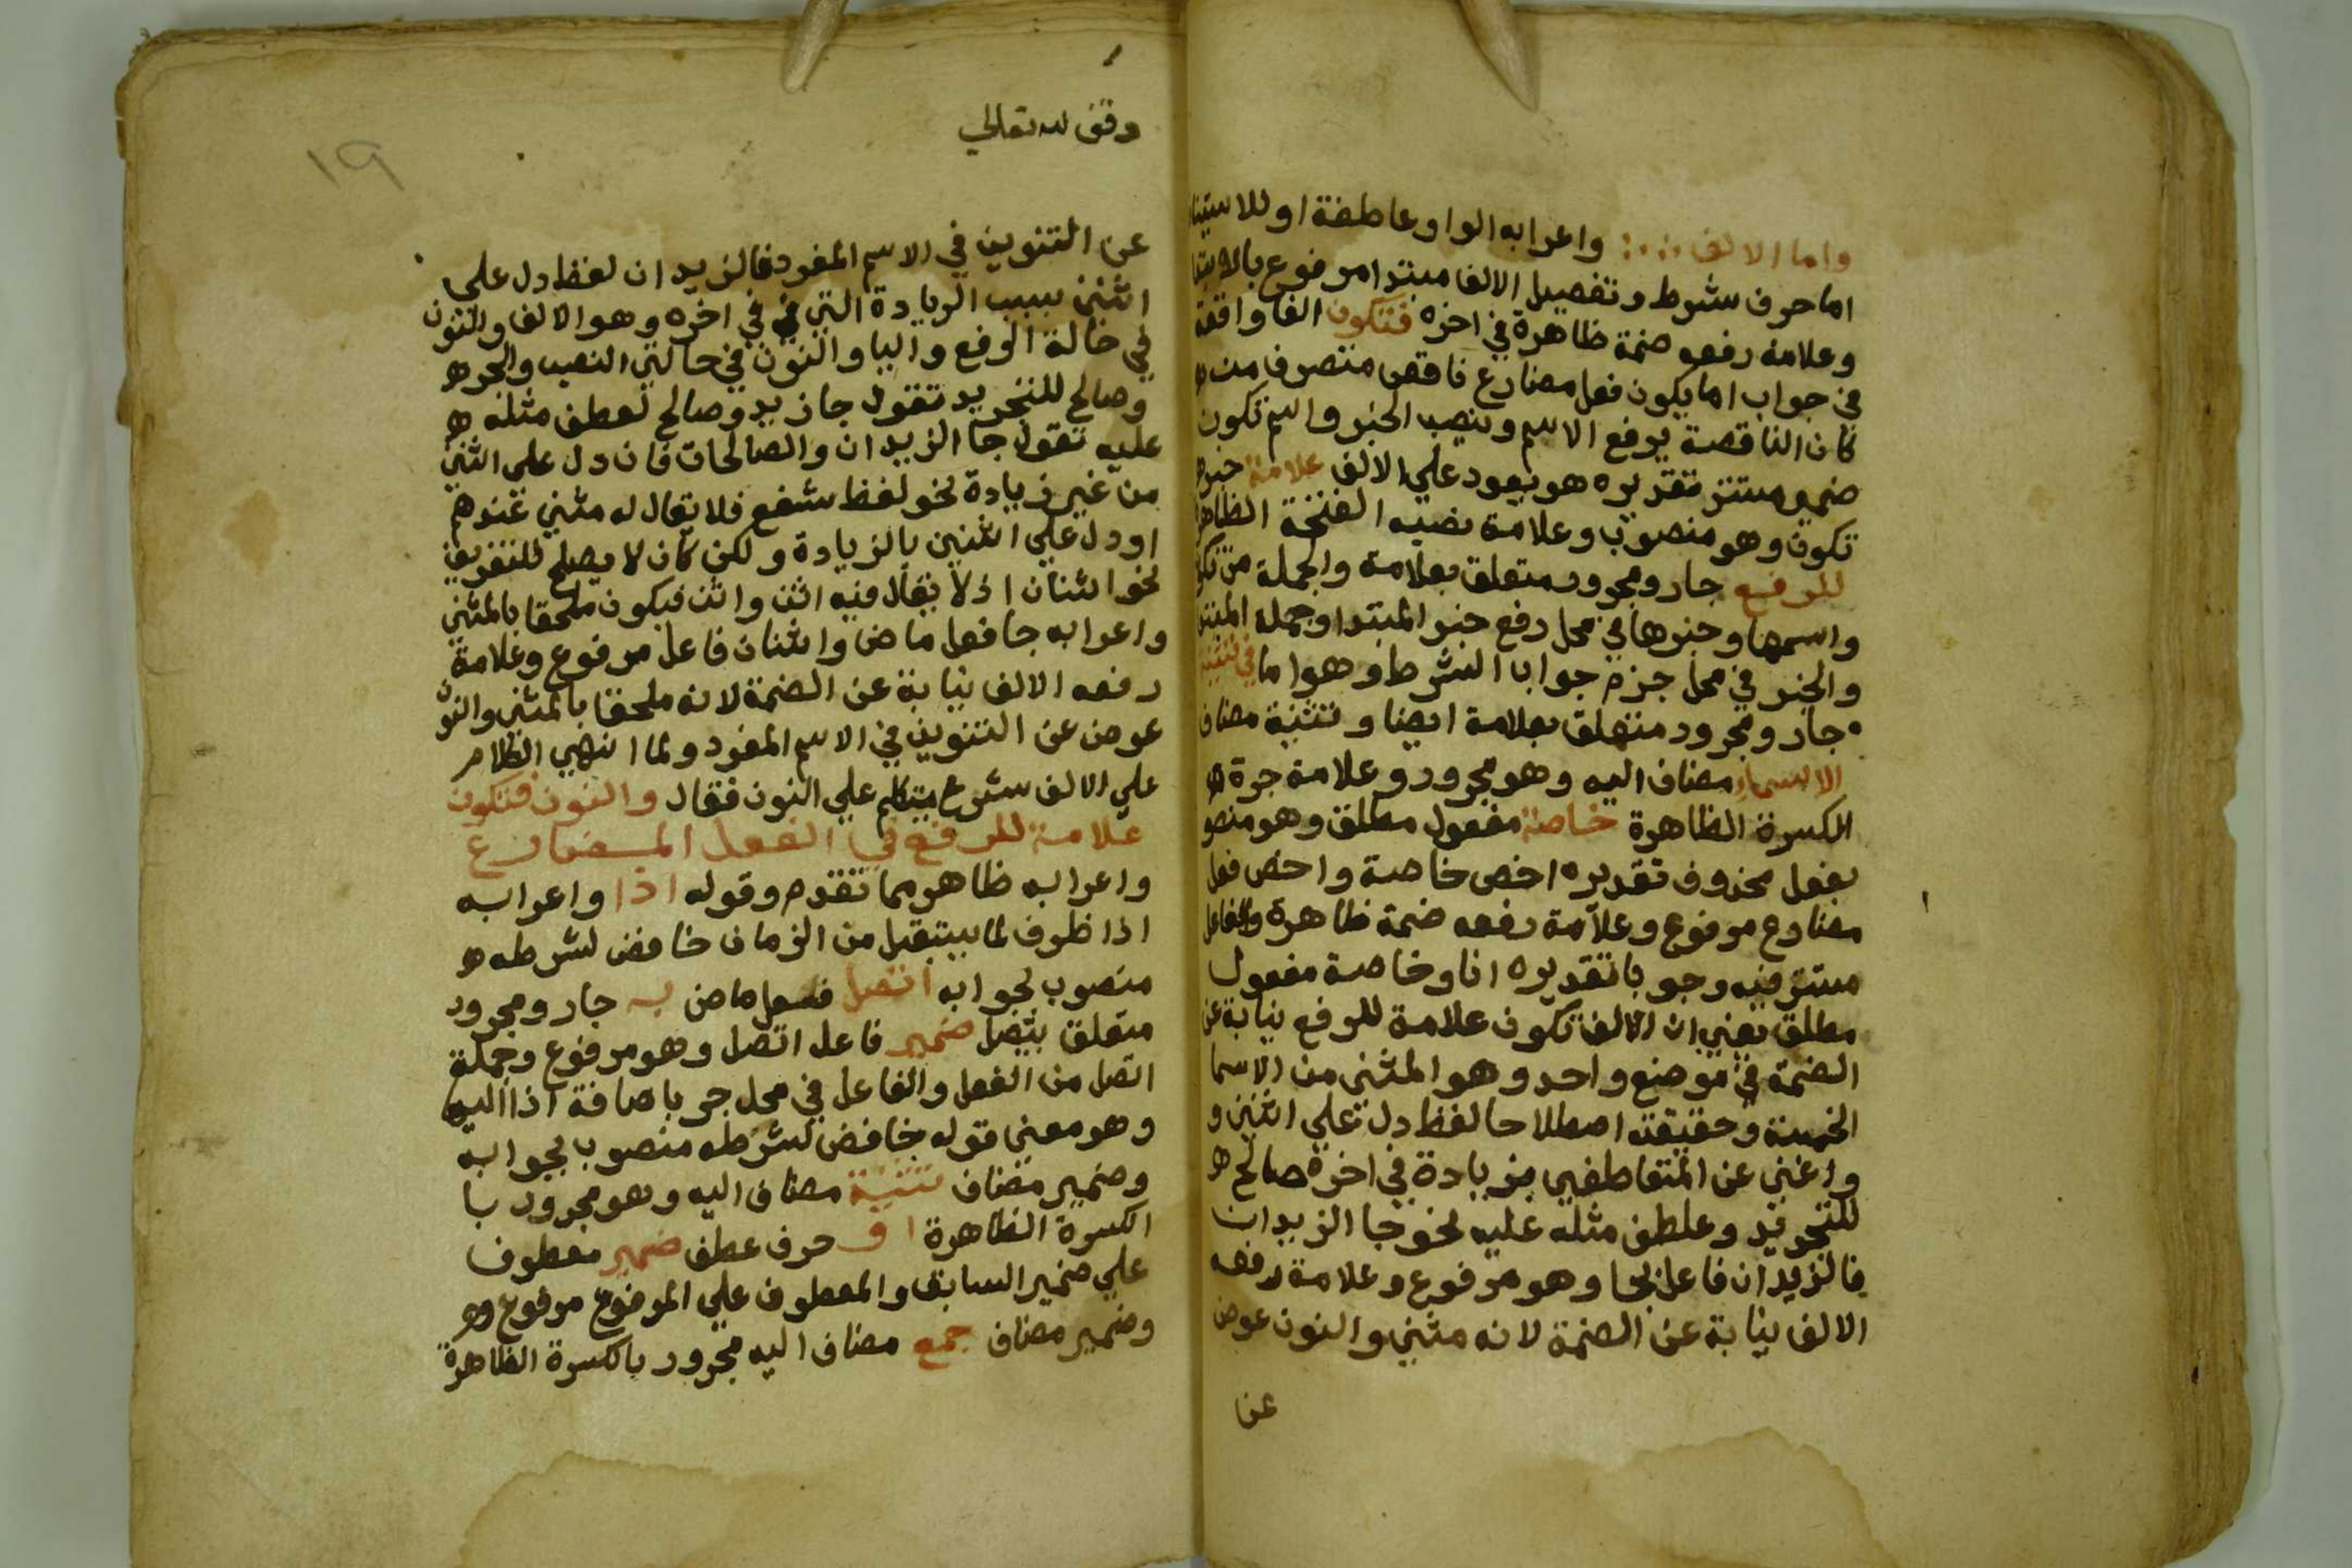 واما الالف واعرابه الواو عاطفة او للاستينا
اما حرف شرط وتفصيل الالف مبتدا مرفوع بالابتدا
وعلامة رفعه ضمة ظاهرة في اخره فتكون الفا واقعة
في جواب اما يكون فعل مضارع ناقص متصرف من
كان الناقصة يرفع الاسم وينصب الخبر واسم تكون
ضمير مستتر تقديره هو يعود علي الالف علامة خبر
تكون وهو منصوب وعلامة نصبه الفتحة الظاهرة
للرفع جار ومجرور متعلق بعلامة والجملة من تكون
واسمها وخبرها في محل رفع خبر المبتدا وجملة المبتدا
والخبر في محل جزم جواب الشرط وهو اما في تثنية
جار ومجرور متعلق بعلامة ايضا وتثنية مضاف
الاسماء مضاف اليه وهو مجرور وعلامة جرة
الكسرة الظاهرة خاصة مفعول مطلق وهو منصو
بفعل محذوف تقديره اخص خاصة واخص فعل
مضارع مرفوع وعلامة رفعه ضمة ظاهرة والفاعل
مستتر فيه وجوبا تقديره انا وخاصة مفعول
مطلق يعني ان الالف تكون علامة للرفع نيابة عن
الضمة في موضع واحد وهو المثنى من الاسما
الخمسة وحقيقته اصطلاحا لفظ دل علي اثنين و
واغني عن المتعاطفين بزيادة في اخرة صالح
للتجريد وعطف مثله عليه نحو جا الزيدان
فالزيدان فاعل بجا وهو مرفوع وعلامة رفعه
الالف نيابة عن الضمة لانه مثني والنون عوض
عن
وقف لله تعالي
١٩
عن التنوين في الاسم المفرد فالزيدان لفظ دل علي
اثنين بسبب الزيادة التي في اخره وهو الالف والنون
في حالة الرفع واليا والنون في حالتي النصب والجر
وصالح للتجريد تقول جا زيد وصالح لعطف مثله
عليه تقول جا الزيدان والصالحات فان دل على اثنين
من غير زيادة نحو لفظ شفع فلا يقال له مثني عندهم
او دل علي اثنين بالزيادة ولكن كان لا يصلح للتفريق
نحو اثنان اذ لا يقال فيه اثن واثن فيكون ملحقا بالمثني
واعرابه جا فعل ماض واثنان فاعل مرفوع وعلامة
رفعه الالف نيابة عن الضمة لانه ملحقا بالمثنى والنون
عوض عن التنوين في الاسم المفرد ولما انهي الكلام
علي الالف شرع يتكلم علي النون فقال والنون فتكون
علامة للرفع في الفعل المضارع
واعرابه ظاهر مما تقدم وقوله اذا واعرابه
اذا ظرف لما يستقبل من الزمان خافض لشرطه
منصوب بجوابه اتصل فعل ماض به جار ومجرور
متعلق بتصل ضمير فاعل اتصل وهو مرفوع وجملة
اتصل من الفعل والفاعل في محل جر باضافة اذا اليه
وهو معنى قوله خافض لشرطه منصوب بجوابه
وضمير مضاف تثنية مضاف اليه وهو مجرور با
الكسرة الظاهرة او حرف عطف ضمير معطوف
علي ضمير السابق والمعطوف علي المرفوع مرفوع
وضمير مضاف جمع مضاف اليه مجرور بالكسرة الظاهرة